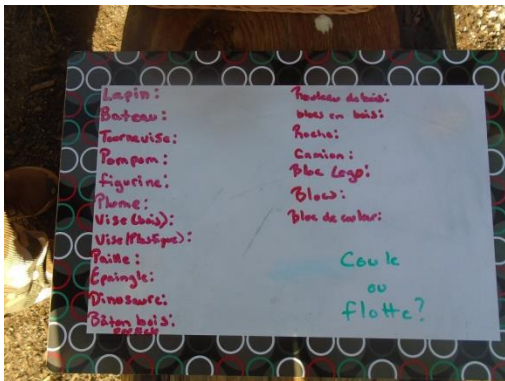 Lapin:
Bateau:
Tournevise:
Pompom:
figurine:
Plume:
Vise (bois):
Vise (Plastique):
Paille:
Épaingle:
Dinosaure:
Bâton bois:
Rouleau de bois:
blocs en bois:
Roche:
Camion:
Bloc Lego:
Blocs:
Bloc de couleur:
Coule
ou
flotte?